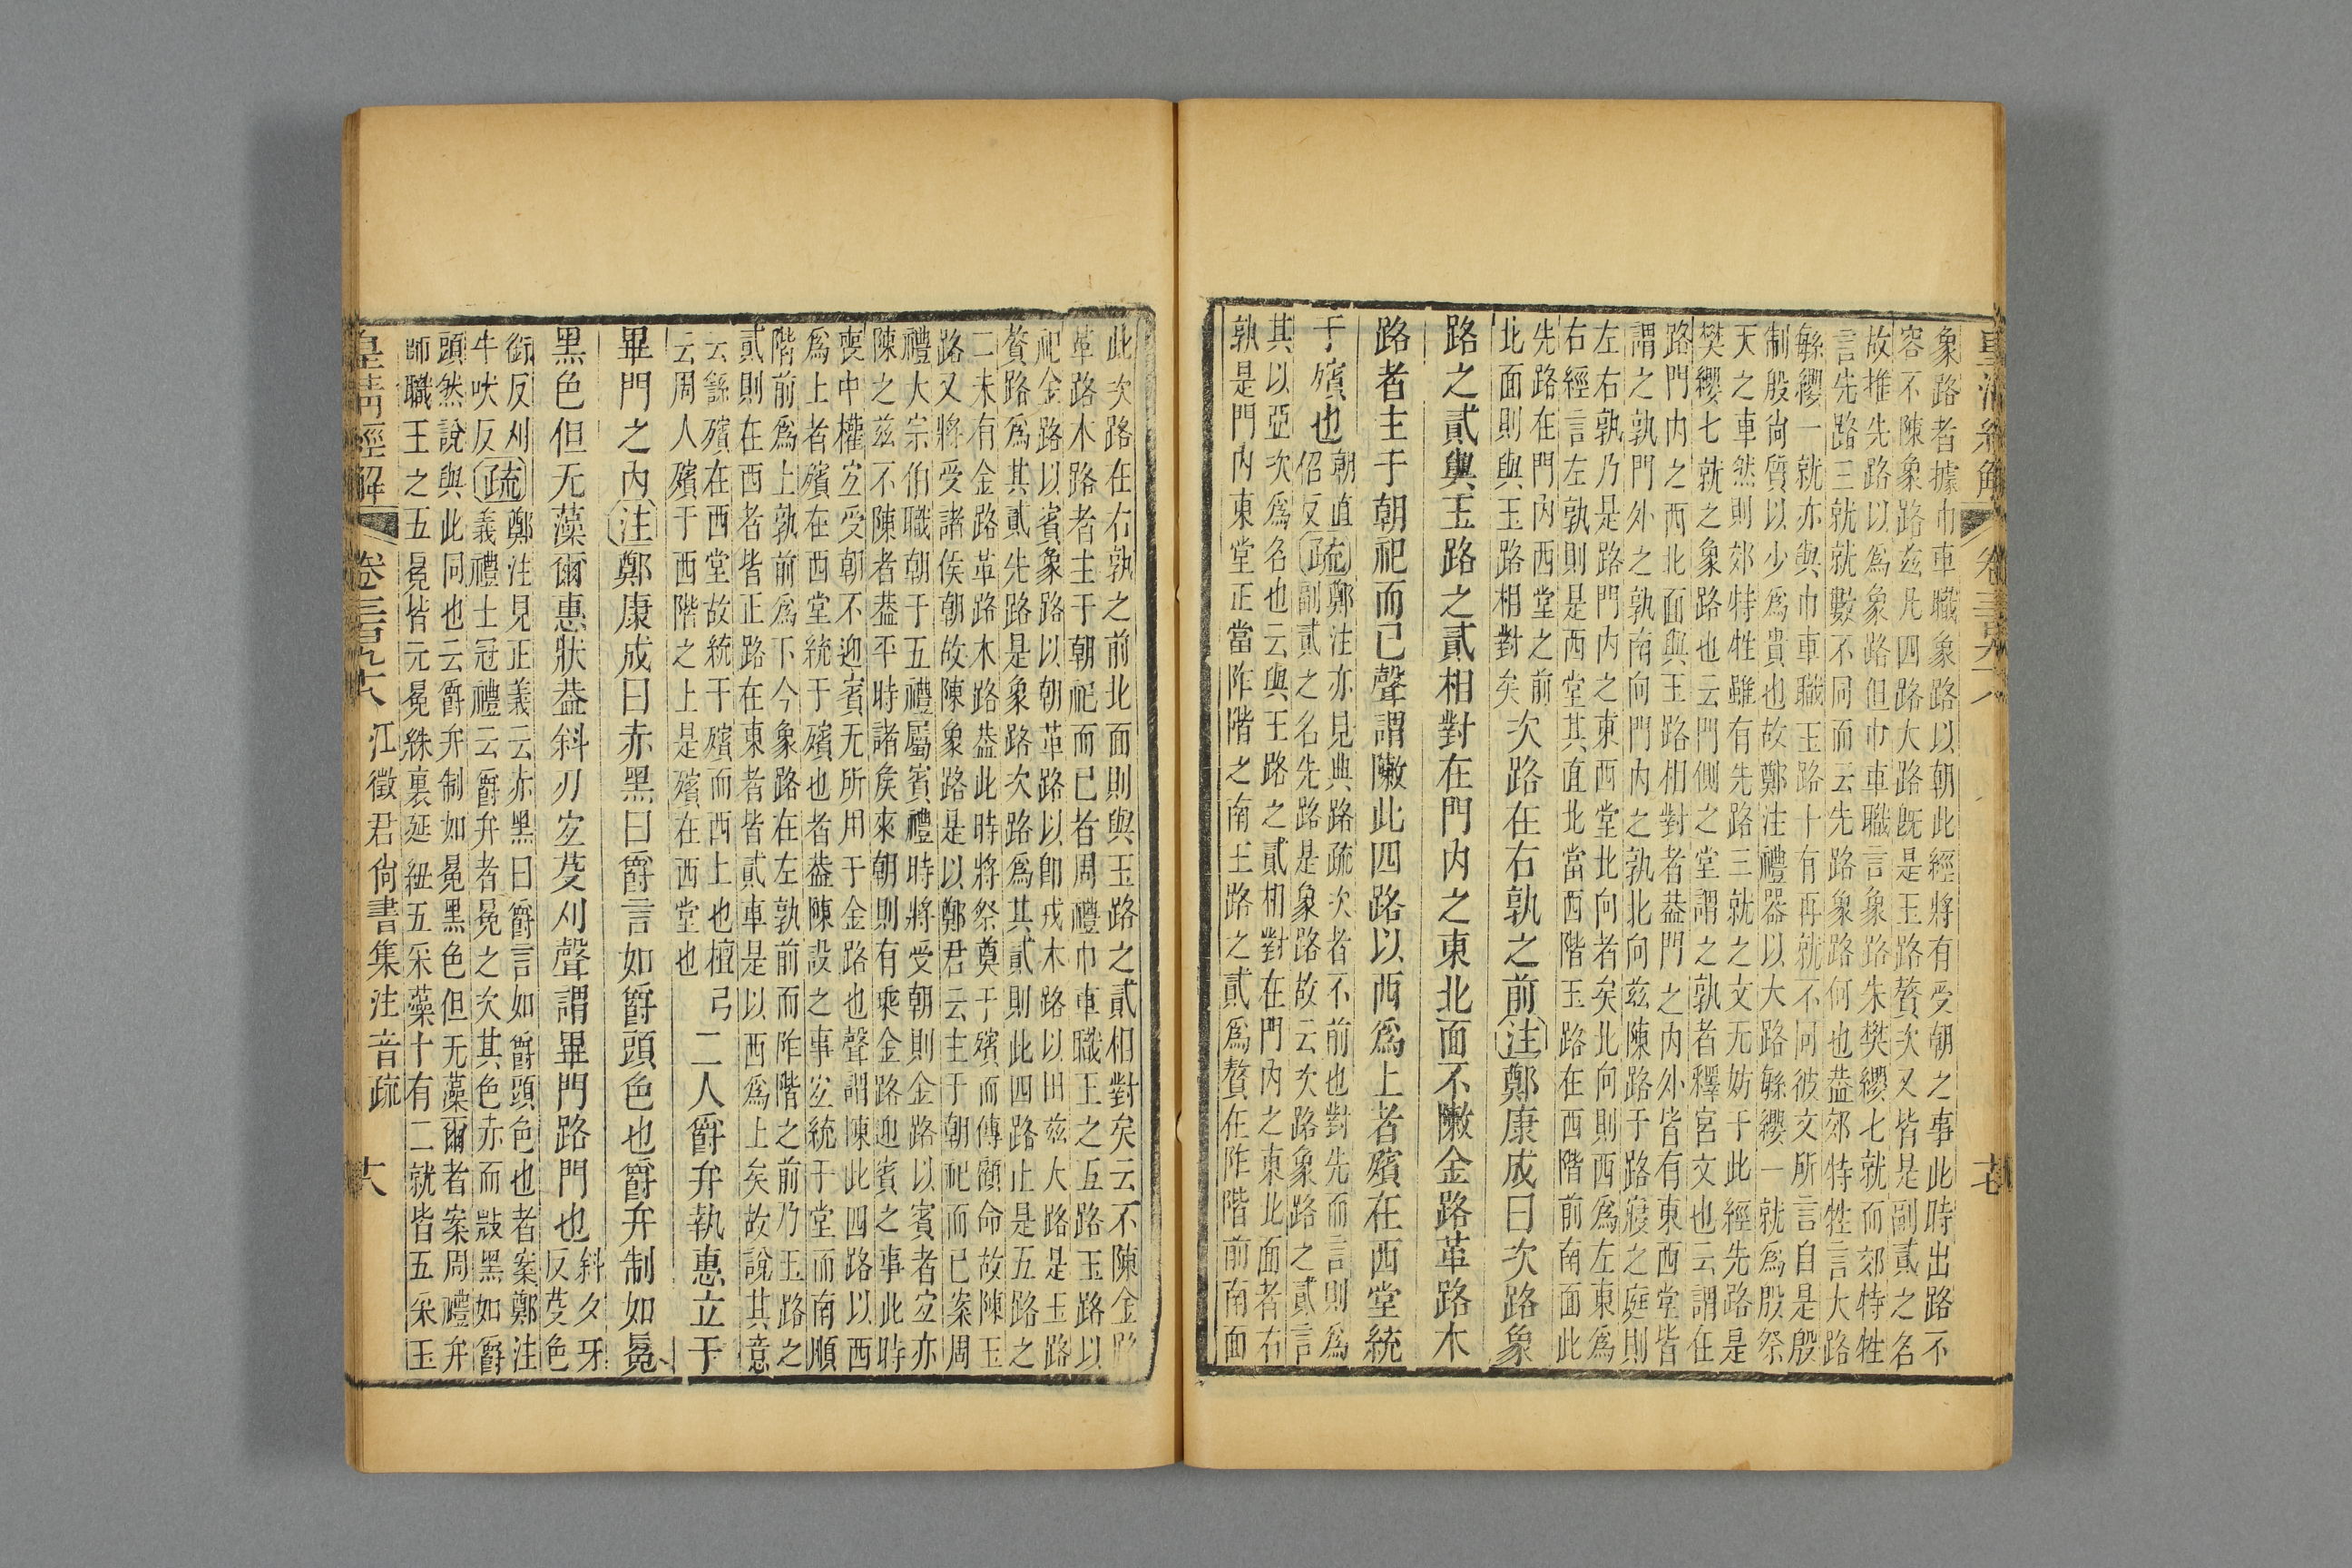 皇淸經解
卷三百九十八
十七
象路者據巾車職象路以朝此經將有受朝之事此時出路不
容不陳象路茲凡四路大路旣是玉路贅次又皆是副貳之名
故推先路以爲象路但巾車職言象路朱樊纓七就而郊特牲
言先路三就就數不同而云先路象路何也葢郊特牲言大路
緐纓一就亦與巾車職玉路十有再就不同彼文所言自是殷
制殷尙質以少爲貴也故鄭注禮器以大路緐纓一就爲殷祭
天之車然則郊特牲雖有先路三就之文无妨于此經先路是
樊纓七就之象路也云門側之堂謂之孰者釋宮文也云謂在
路門內之西北面與玉路相對者葢門之內外皆有東西堂皆
謂之孰門外之孰南向門內之孰北向茲陳路于路寢之庭則
左右孰乃是路門內之東西堂北向者矣北向則西爲左東爲
右經言左孰則是西堂其直北當西階玉路在西階前南面此
先路在門內西堂之前
北面則與玉路相對矣
次路在右孰之前注鄭康成曰次路象
路之貳與玉路之貳相對在門內之東北面不敶金路革路木
路者主于朝祀而已聲謂敶此四路以西爲上者殯在西堂統
于殯也
朝直
佋反
疏鄭注亦見典路疏次者不前也對先而言則爲
副貳之名先路是象路故云次路象路之貳言
其以亞次爲名也云與王路之貳相對在門內之東北面者右
孰是門內東堂正當阼階之南王路之貳爲贅在阼階前南面
此次路在右孰之前北面則與玉路之貳相對矣云不陳金路
革路木路者主于朝祀而已者周禮巾車職王之五路玉路以
祀金路以賓象路以朝革路以卽戎木路以田茲大路是玉路
贅路爲其貳先路是象路次路爲其貳則此四路止是五路之
二未有金路革路木路葢此時將祭奠于殯而傳顧命故陳玉
路又將受諸侯朝故陳象路是以鄭君云主于朝祀而已案周
禮大宗伯職朝于五禮屬賓禮時將受朝則金路以賓者宐亦
陳之茲不陳者葢平時諸矦來朝則有乘金路迎賓之事此時
喪中權宐受朝不迎賓无所用于金路也聲謂陳此四路以西
爲上者殯在西堂統于殯也者葢陳設之事宐統于堂而南順
階前爲上孰前爲下今象路在左孰前而阼階之前乃玉路之
貳則在西者皆正路在東者皆貳車是以西爲上矣故說其意
云繇殯在西堂故統于殯而西上也檀弓
云周人殯于西階之上是殯在西堂也
二人爵弁執惠立于
畢門之內注鄭康成曰赤黑曰爵言如爵頭色也爵弁制如冕
黑色但无藻爾惠狀葢斜刃宐芟刈聲謂畢門路門也
斜夕牙
反芟色
銜反刈
牛吠反
疏鄭注見正義云赤黑曰爵言如爵頭色也者案鄭注
義禮士冠禮云爵弁者冕之次其色赤而㪇黑如爵
頭然說與此同也云爵弁制如冕黑色但无藻爾者案周禮弁
師職王之五冕皆元冕絑裏延紐五采藻十有二就皆五采玉
皇淸經解
卷三百九十八
江徵君尙書集注音疏
十八